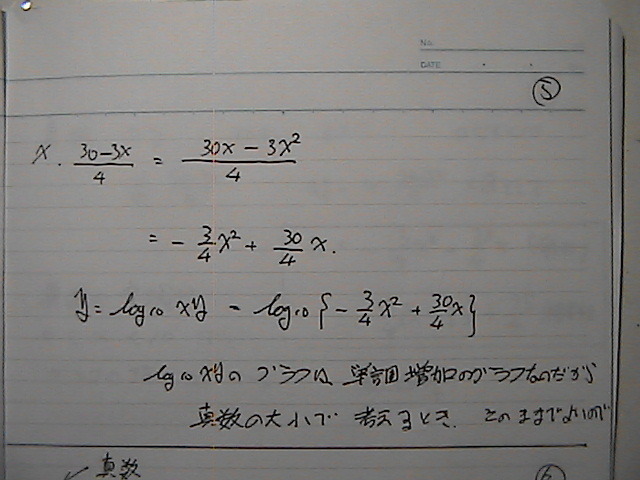 NO.
DATE
⑤
x・(30-3x)/4 = (30x - 3x²)/4
= - 3/4 x² + 30/4 x.
y = log₁₀ xy = log₁₀ { - 3/4 x² + 30/4 x }
log₁₀ xy の グラフは 単調増加のグラフなのだから
真数の大小で 考えるとき. そのままでよいので
真数